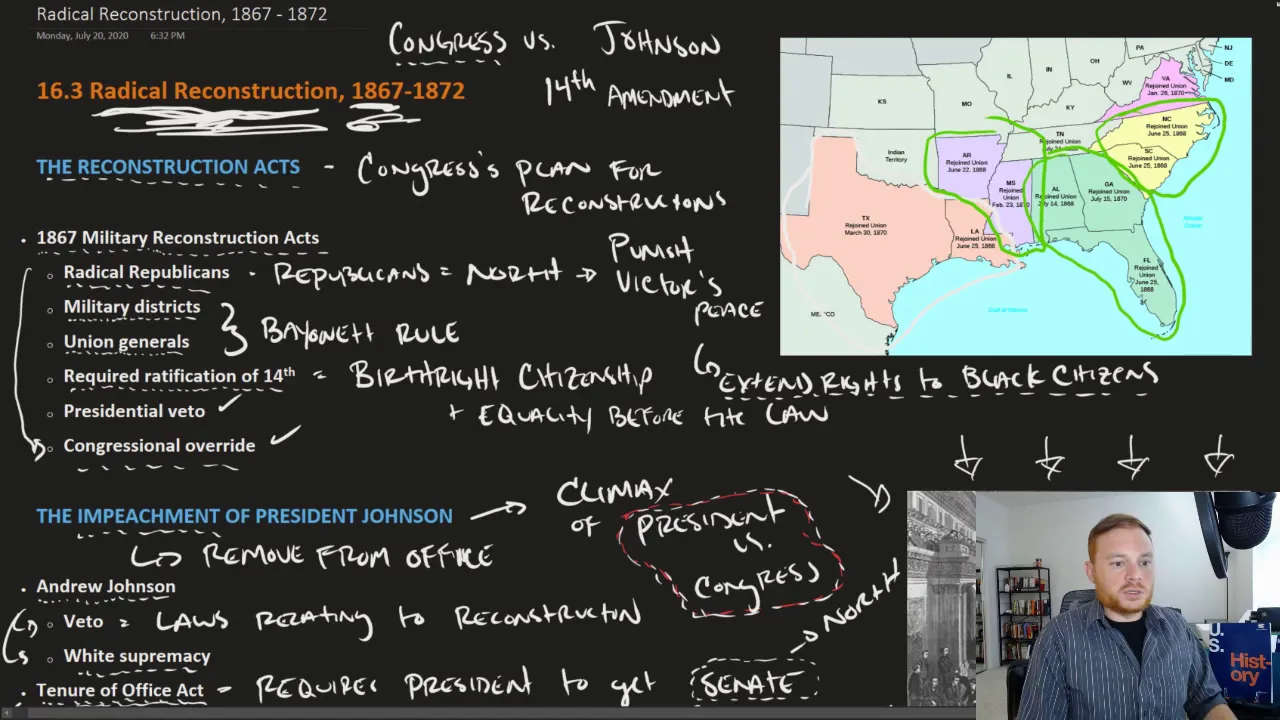 Radical Reconstruction, 1867 - 1872
Monday, July 20, 2020 6:32 PM
CONGRESS vs. JOHNSON
14th AMENDMENT
16.3 Radical Reconstruction, 1867-1872
THE RECONSTRUCTION ACTS - CONGRESS'S PLAN FOR
RECONSTRUCTIONS
1867 Military Reconstruction Acts
Radical Republicans - REPUBLICANS = NORTH → PUNISH
VICTOR'S
PEACE
Military districts
Union generals
BAYONETT RULE
Required ratification of 14th = BIRTHRIGHT CITIZENSHIP
+ EQUALITY BEFORE THE LAW
EXTEND RIGHTS TO BLACK CITIZENS
Presidential veto ✓
Congressional override ✓
THE IMPEACHMENT OF PRESIDENT JOHNSON → CLIMAX
OF PRESIDENT
VS.
CONGRESS
REMOVE FROM OFFICE
Andrew Johnson
Veto = LAWS RELATING TO RECONSTRUCTION
White supremacy
Tenure of Office Act - REQUIRES PRESIDENT to get SENATE
NORTH
NJ
DE
MD
PA
OH
IN
IL
WV
VA
Rejoined Union
Jan. 26, 1870
KS
MO
KY
TN
NC
Rejoined Union
June 25, 1868
SC
Rejoined Union
June 25, 1868
Indian
Territory
AR
Rejoined Union
June 22, 1868
MS
Rejoined Union
Feb. 23, 1870
AL
Rejoined Union
July 14, 1868
GA
Rejoined Union
July 15, 1870
TX
Rejoined Union
March 30, 1870
LA
Rejoined Union
June 25, 1868
FL
Rejoined
Union
June 25,
1868
Gulf of Mexico
U.
S.
Hist-
ory